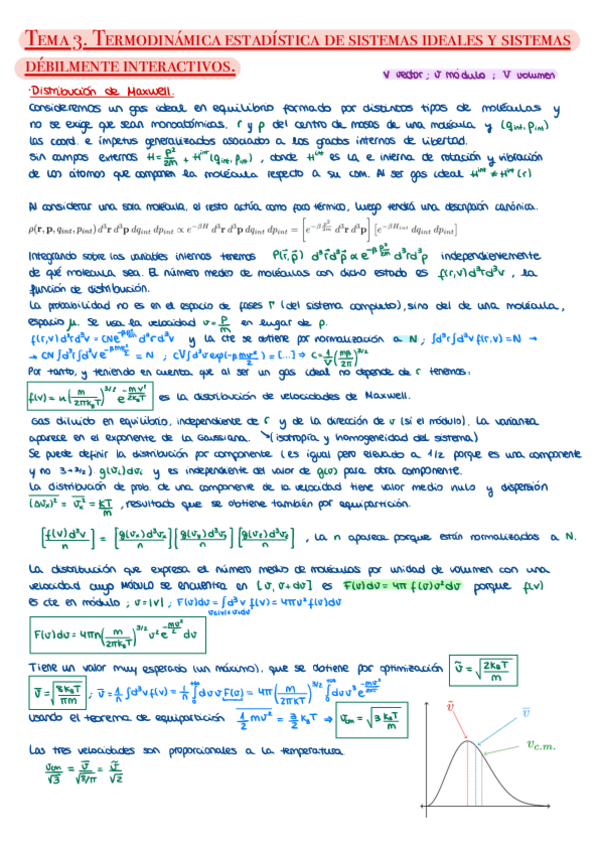 TEMA 3. TERMODINÁMICA ESTADÍSTICA DE SISTEMAS IDEALES Y SISTEMAS
DÉBILMENTE INTERACTIVOS.
V vector; v módulo; V volumen
·Distribución de Maxwell.
Consideremos un gas ideal en equilibrio formado por distintos tipos de moléculas y
no se exige que sean monoatómicas. r y p del centro de masas de una molécula y (qint, pint)
las coord. e ímpetus generalizados asociados a los grados internos de libertad.
Sin campos externos H = p²/2m + H^int (qint, pint), donde H^int es la e interna de rotación y vibración
de los átomos que componen la molécula respecto a su com. Al ser gas ideal H^int ≠ H^int (r)
Al considerar una sola molécula, el resto actúa como foco térmico, luego tendrá una descripción canónica.
ρ(r, p, qint, pint) d³r d³p dqint dpint ∝ e^{-βH} d³r d³p dqint dpint = [e^{-β p²/2m} d³r d³p] [e^{-βHint} dqint dpint]
Integrando sobre las variables internas tenemos P(r⃗,p⃗) d³r⃗ d³p⃗ ∝ e^{-β p²/2m} d³r d³p independientemente
de qué molécula sea. El número medio de moléculas con dicho estado es f(r,v) d³r d³v, la
función de distribución.
La probabilidad no es en el espacio de fases Γ (del sistema completo), sino del de una molécula,
espacio μ. Se usa la velocidad v = p/m en lugar de p.
y la cte se obtiene por normalización a N; ∫d³r∫d³v f(r,v) = N →
→ CN ∫d³r∫d³v e^{-βmv²/2} = N ; CV∫d³v exp(-β mv²/2) = [...] ⇒ C = 1/V (mβ/2π)^{3/2}
Por tanto, y teniendo en cuenta que al ser un gas ideal no depende de r tenemos:
f(v) = n (m/2πk_BT)^{3/2} e^{-mv²/2k_BT} es la distribución de velocidades de Maxwell.
Gas diluido en equilibrio, independiente de r y de la dirección de v (sí el módulo). La varianza
aparece en el exponente de la Gaussiana. ↘(isotropía y homogeneidad del sistema)
Se puede definir la distribución por componente (es igual pero elevado a 1/2 porque es una componente
y no 3→3/2). g(vi) dvi y es independiente del valor de g(v) para otra componente.
La distribución de prob. de una componente de la velocidad tiene valor medio nulo y dispersión
(Δvx)² = vx² = kT/m, resultado que se obtiene también por equipartición.
[f(v) d³v / n] = [g(vx) d³vx / n] [g(vy) d³vy / n] [g(vz) d³vz / n], la n aparece porque están normalizados a N.
La distribución que expresa el número medio de moléculas por unidad de volumen con una
velocidad cuyo MÓDULO se encuentra en [v, v+dv] es F(v)dv = 4π f(v) v² dv porque f(v)
es cte en módulo; v = |v| ; F(v)dv = ∫d³v f(v) = 4πv² f(v)dv
F(v)dv = 4πn (m/2πk_BT)^{3/2} v² e^{-mv²/2} dv
Tiene un valor muy esperado (un máximo), que se obtiene por optimización ṽ = √(2k_BT/m)
v̄ = √(8k_BT/πm) ; v̄ = 1/n ∫d³v f(v) = 1/n ∫dv v F(v) = 4π (m/2πkT)^{3/2} ∫dv v³ e^{-mv²/2kT}
usando el teorema de equipartición 1/2 mv² = 3/2 k_BT ⇒ vcm = √(3 k_BT/m)
Las tres velocidades son proporcionales a la temperatura.
vcm/√3 = v̄/√(8/π) = ṽ/√2
ṽ
v̄
vc.m.